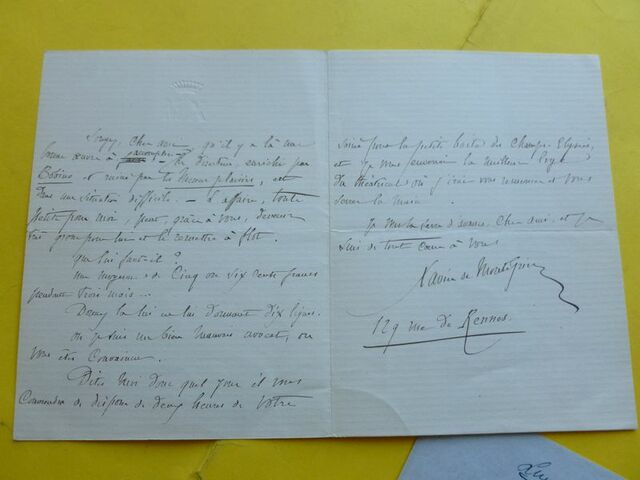 Songez, cher ami, qu'il y a là une
bonne œuvre à accomplir. — Le Directeur, enrichi par
et ruiné par les Menus plaisirs, est
dans une situation difficile. — L'affaire, toute
petite pour moi, peut, grâce à vous, devenir
très grosse pour lui et le remettre à flot.
Que lui faut-il ?
Une moyenne de Cinq ou Six cents francs
pendant Trois mois...
Donnez la lui en lui donnant dix lignes.
Ou je suis un bien mauvais avocat, ou
vous êtes Convaincu.
Dites moi donc quel jour il vous
Conviendra de disposer de deux heures de Votre
Soirée pour la petite boîte des Champs Elysées,
et je vous enverrai la meilleure loge
du théâtricule où j'irai vous remercier et vous
serrer la main.
Je vous la serre d'avance, Cher ami, et je
suis de tout cœur à vous
Xavier de Montépin
129 rue de Rennes.